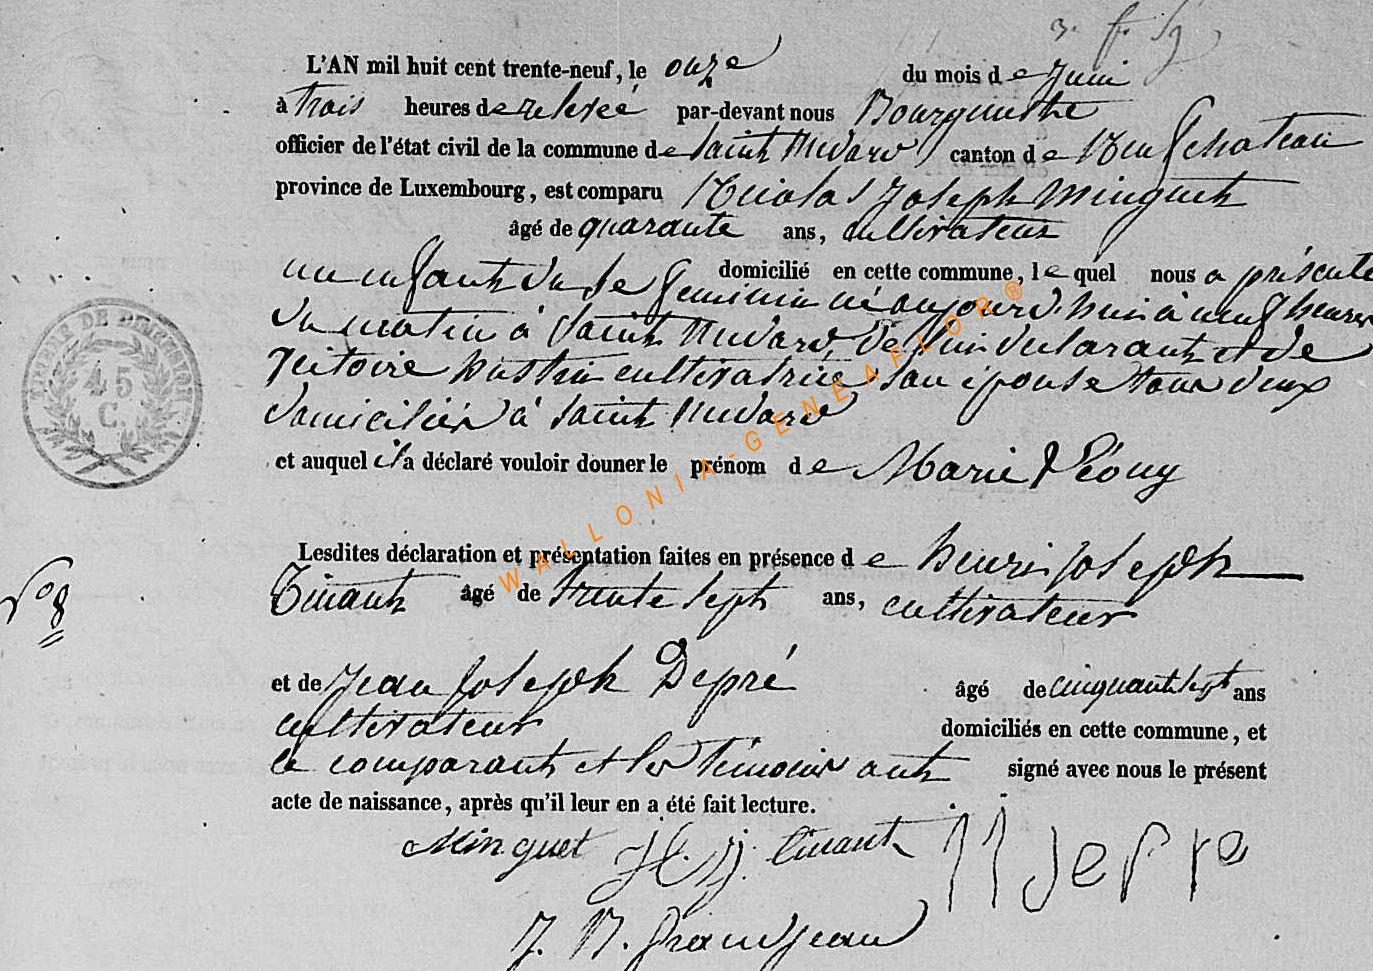 L'AN mil huit cent trente-neuf, le onze du mois de Juin
à trois heures de relevée par-devant nous Bourguinhe
officier de l'état civil de la commune de Saint Medard canton de Neufchateau
province de Luxembourg, est comparu Nicolas Joseph Minguet
âgé de quarante ans, cultivateur
domicilié en cette commune, lequel nous a présenté
un enfant du sexe feminin né aujourd'hui à neuf heures
du matin à Saint Medard, de lui declarant et de
Victoire cultivatrice son épouse tous deux
domiciliés à Saint Medard
et auquel il a déclaré vouloir donner le prénom de Marie Léony
Lesdites déclaration et présentation faites en présence de henri joseph
Tinant âgé de trente sept ans, cultivateur
N° 8
et de Jean joseph Depré âgé de cinquante sept ans
cultivateur domiciliés en cette commune, et
le comparant et les témoins ont signé avec nous le présent
acte de naissance, après qu'il leur en a été fait lecture.
Minguet H. J. Tinant JJ depre
J. N. Grandjean
TIMBRE DE DIMENSION
45
C.
WALLONIA-GENEAFLOR®